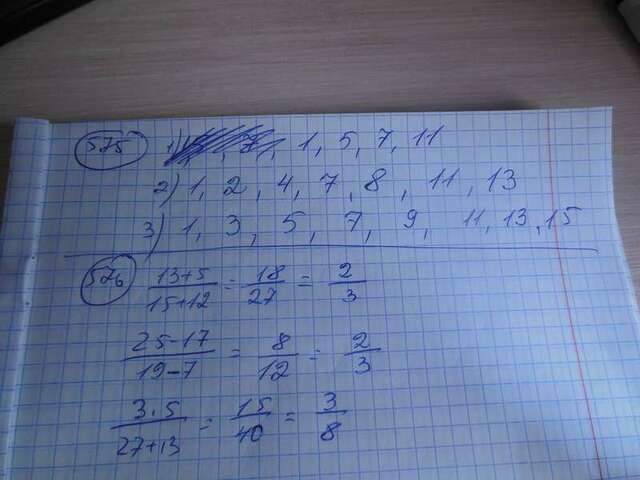 575 1) 1, 5, 7, 11
2) 1, 2, 4, 7, 8, 11, 13
3) 1, 3, 5, 7, 9, 11, 13, 15
576 13+5/15+12 = 18/27 = 2/3
25-17/19-7 = 8/12 = 2/3
3·5/27+13 = 15/40 = 3/8